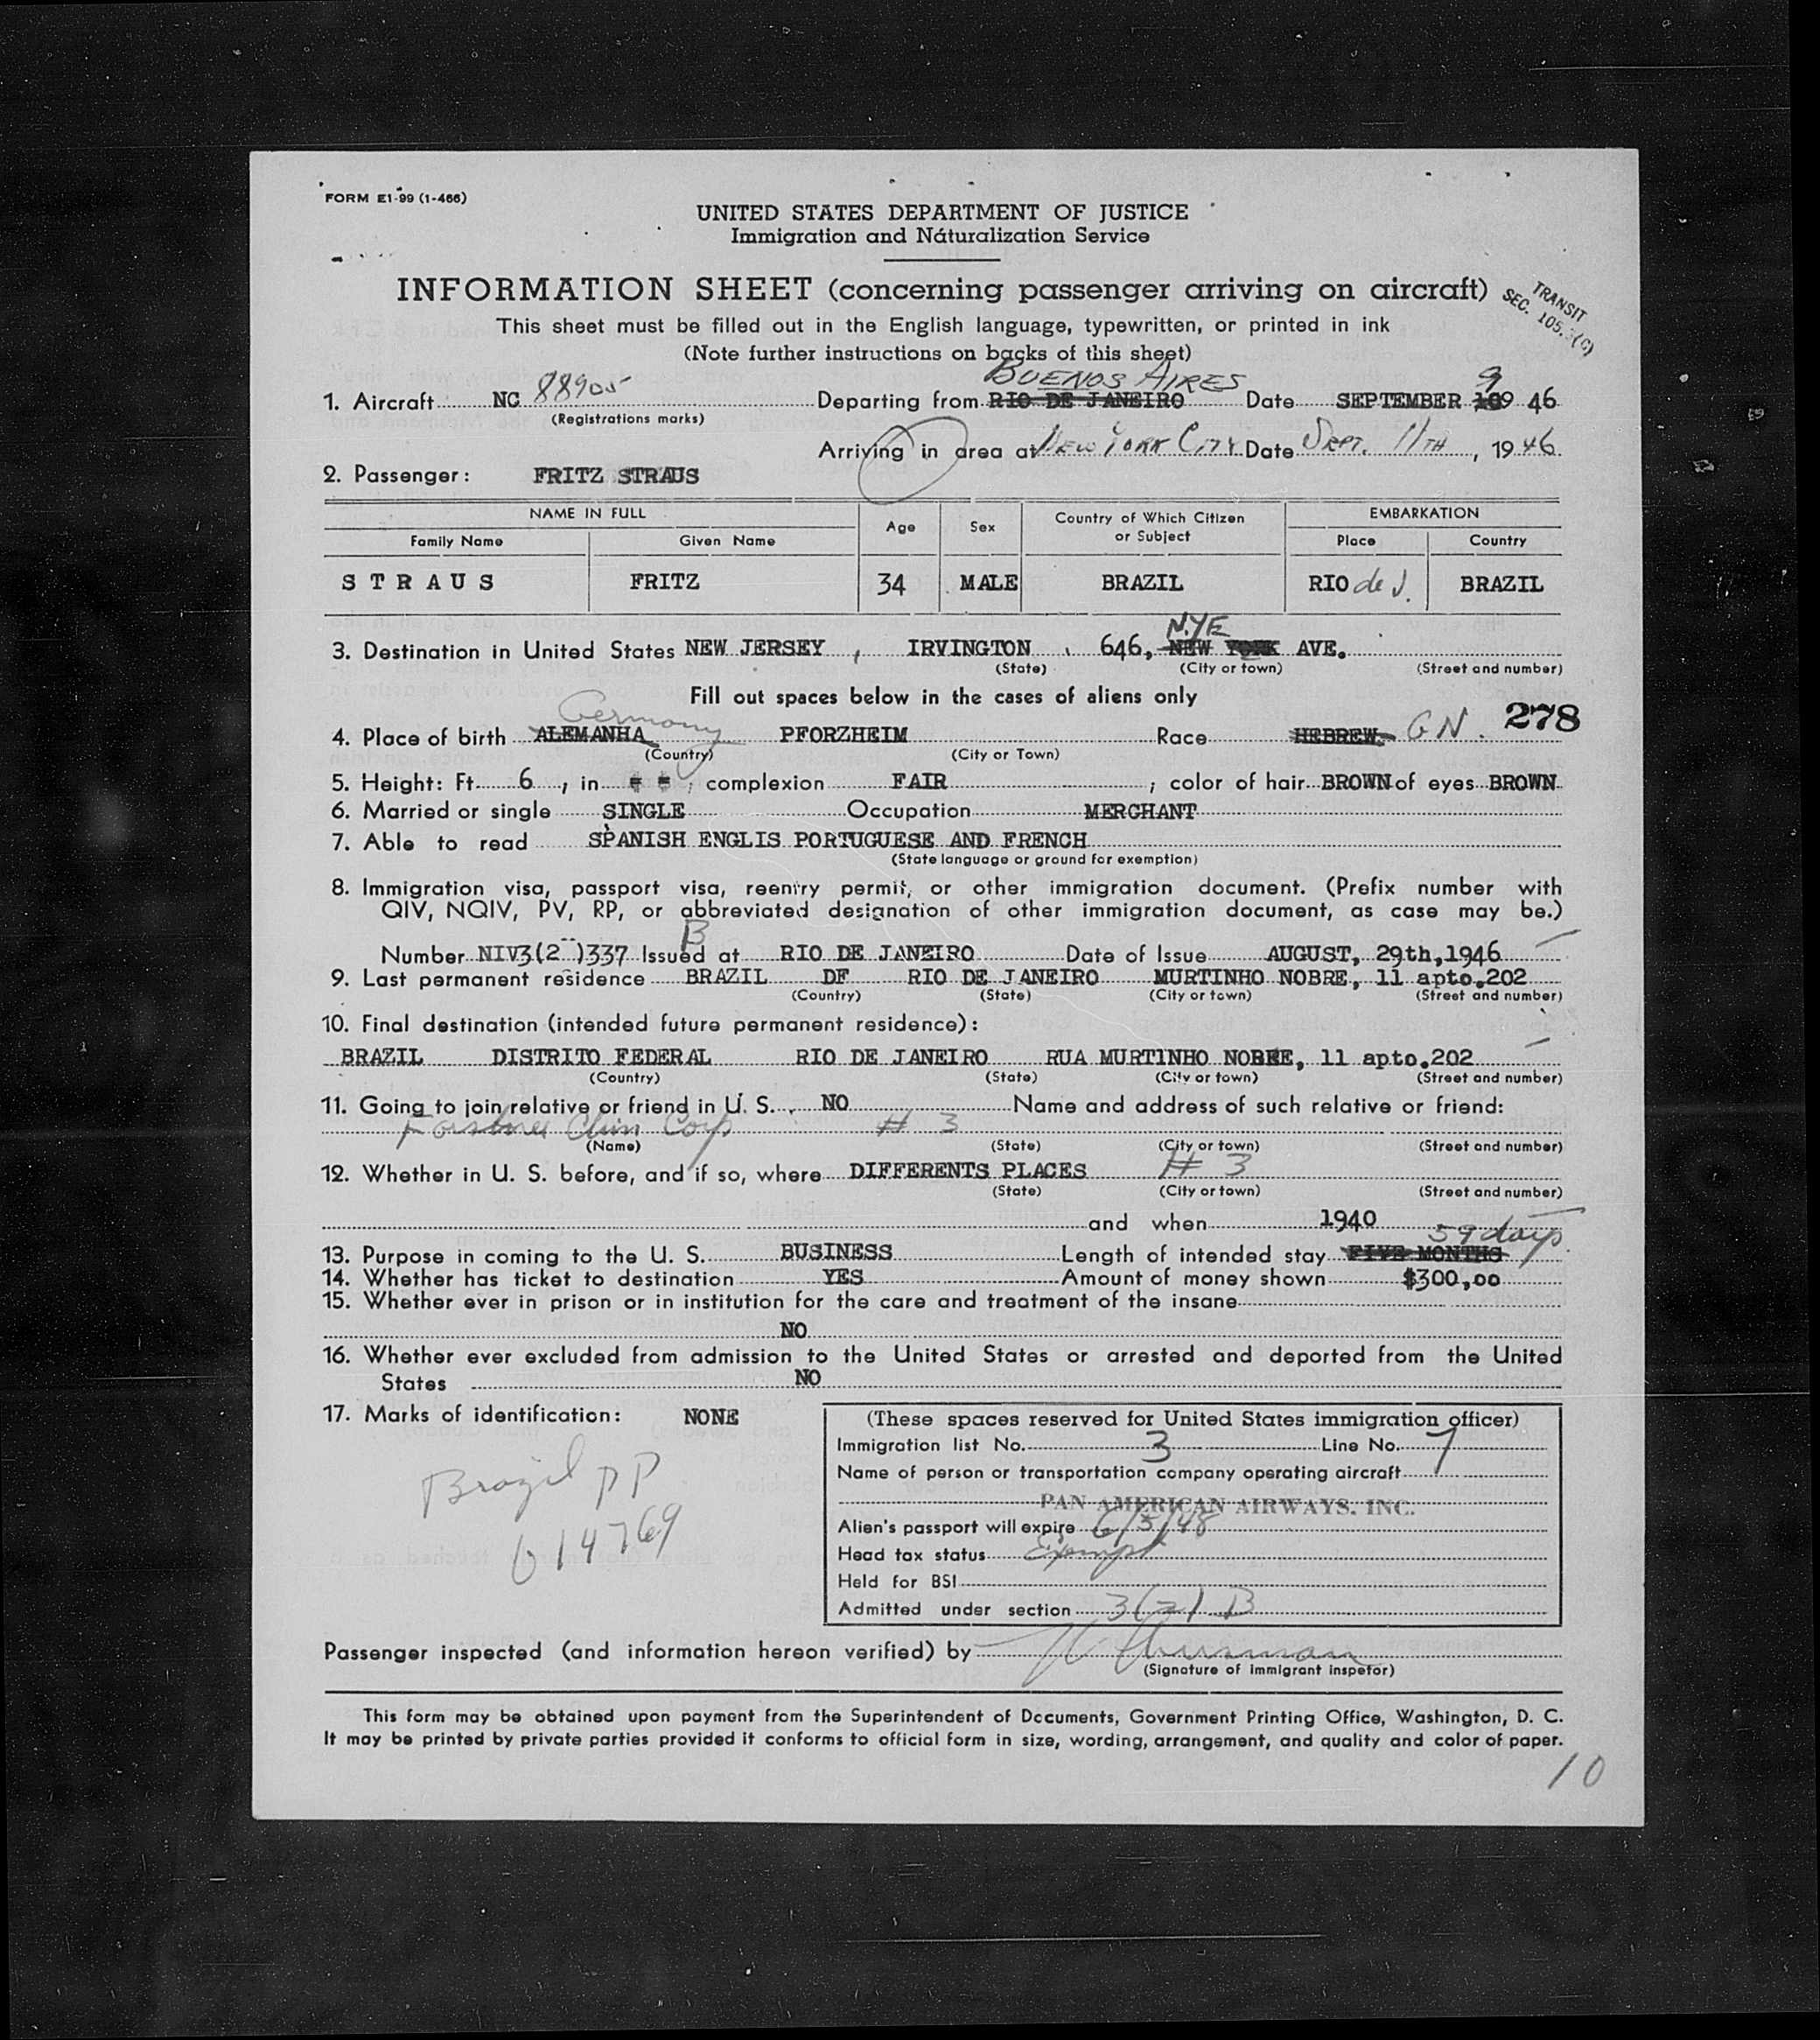 FORM E1-99 (1-466)
UNITED STATES DEPARTMENT OF JUSTICE
Immigration and Naturalization Service
INFORMATION SHEET (concerning passenger arriving on aircraft)
TRANSIT
SEC. 105.3(C)
This sheet must be filled out in the English language, typewritten, or printed in ink
(Note further instructions on backs of this sheet)
BUENOS AIRES 9
1. Aircraft NC 88905 Departing from RIO DE JANEIRO Date SEPTEMBER 1946
(Registrations marks)
Arriving in area at NEW YORK CITY Date SEPT. 11TH, 1946
2. Passenger: FRITZ STRAUS
NAME IN FULL Age Sex Country of Which Citizen or Subject EMBARKATION
Family Name Given Name Place Country
STRAUS FRITZ 34 MALE BRAZIL RIO de J. BRAZIL
NYE
3. Destination in United States NEW JERSEY, IRVINGTON, 646, NEW YORK AVE.
(State) (City or town) (Street and number)
Fill out spaces below in the cases of aliens only
Germany 278
4. Place of birth ALEMANHA PFORZHEIM Race HEBREW GN.
(Country) (City or Town)
5. Height: Ft. 6, in = =; complexion FAIR; color of hair BROWN of eyes BROWN
6. Married or single SINGLE Occupation MERCHANT
7. Able to read SPANISH ENGLIS PORTUGUESE AND FRENCH
(State language or ground for exemption)
8. Immigration visa, passport visa, reentry permit, or other immigration document. (Prefix number with
QIV, NQIV, PV, RP, or abbreviated designation of other immigration document, as case may be.)
B
Number NIV3(2 )337 Issued at RIO DE JANEIRO Date of Issue AUGUST, 29th,1946
9. Last permanent residence BRAZIL DF RIO DE JANEIRO MURTINHO NOBRE, 11 apto.202
(Country) (State) (City or town) (Street and number)
10. Final destination (intended future permanent residence):
BRAZIL DISTRITO FEDERAL RIO DE JANEIRO RUA MURTINHO NOBRE, 11 apto.202
(Country) (State) (City or town) (Street and number)
11. Going to join relative or friend in U. S. NO Name and address of such relative or friend:
Corp # 3
(Name) (State) (City or town) (Street and number)
12. Whether in U. S. before, and if so, where DIFFERENTS PLACES # 3
(State) (City or town) (Street and number)
and when 1940
59 days
13. Purpose in coming to the U. S. BUSINESS Length of intended stay FIVE MONTHS
14. Whether has ticket to destination YES Amount of money shown $300,00
15. Whether ever in prison or in institution for the care and treatment of the insane
NO
16. Whether ever excluded from admission to the United States or arrested and deported from the United
States NO
17. Marks of identification: NONE
Brazil PP
614769
(These spaces reserved for United States immigration officer)
Immigration list No. 3 Line No. 7
Name of person or transportation company operating aircraft
PAN AMERICAN AIRWAYS, INC.
Alien's passport will expire 6/5/48
Head tax status Exempt
Held for BSI
Admitted under section 3(2) B
Passenger inspected (and information hereon verified) by
(Signature of immigrant inspetor)
This form may be obtained upon payment from the Superintendent of Documents, Government Printing Office, Washington, D. C.
It may be printed by private parties provided it conforms to official form in size, wording, arrangement, and quality and color of paper.
10